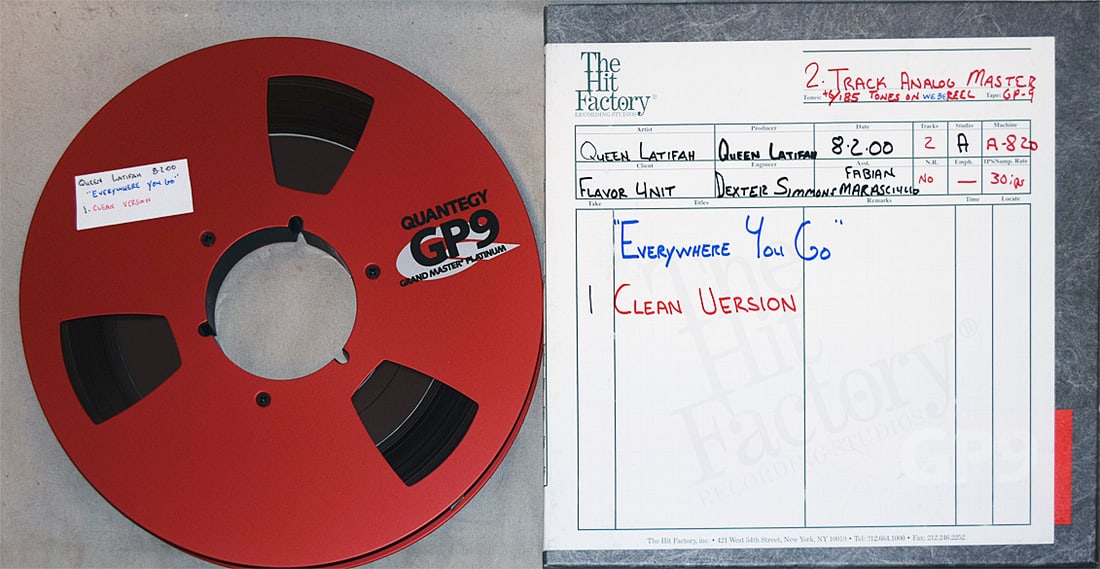 QUEEN LATIFAH 8·2·00
"EVERYWHERE YOU GO"
1. CLEAN VERSION
QUANTEGY
GP9
GRAND MASTER® PLATINUM
The
Hit
Factory®
RECORDING STUDIOS
2·TRACK ANALOG MASTER
Tones: +6/185 TONES ON REEL Tape: GP-9
Artist Producer Date Tracks Studio Machine
QUEEN LATIFAH QUEEN LATIFAH 8·2·00 2 A A-820
Client Engineer Asst. N.R. Emph. IPS/Samp. Rate
FLAVOR UNIT DEXTER SIMMONS FABIAN MARASCIULLO NO — 30 ips
Take Titles Remarks Time Locate
"EVERYWHERE YOU GO"
1 CLEAN VERSION
The
Hit
Factory®
RECORDING STUDIOS
GP9
The Hit Factory, inc. • 421 West 54th Street, New York, NY 10019 • Tel: 212.664.1000 • Fax: 212.246.2252